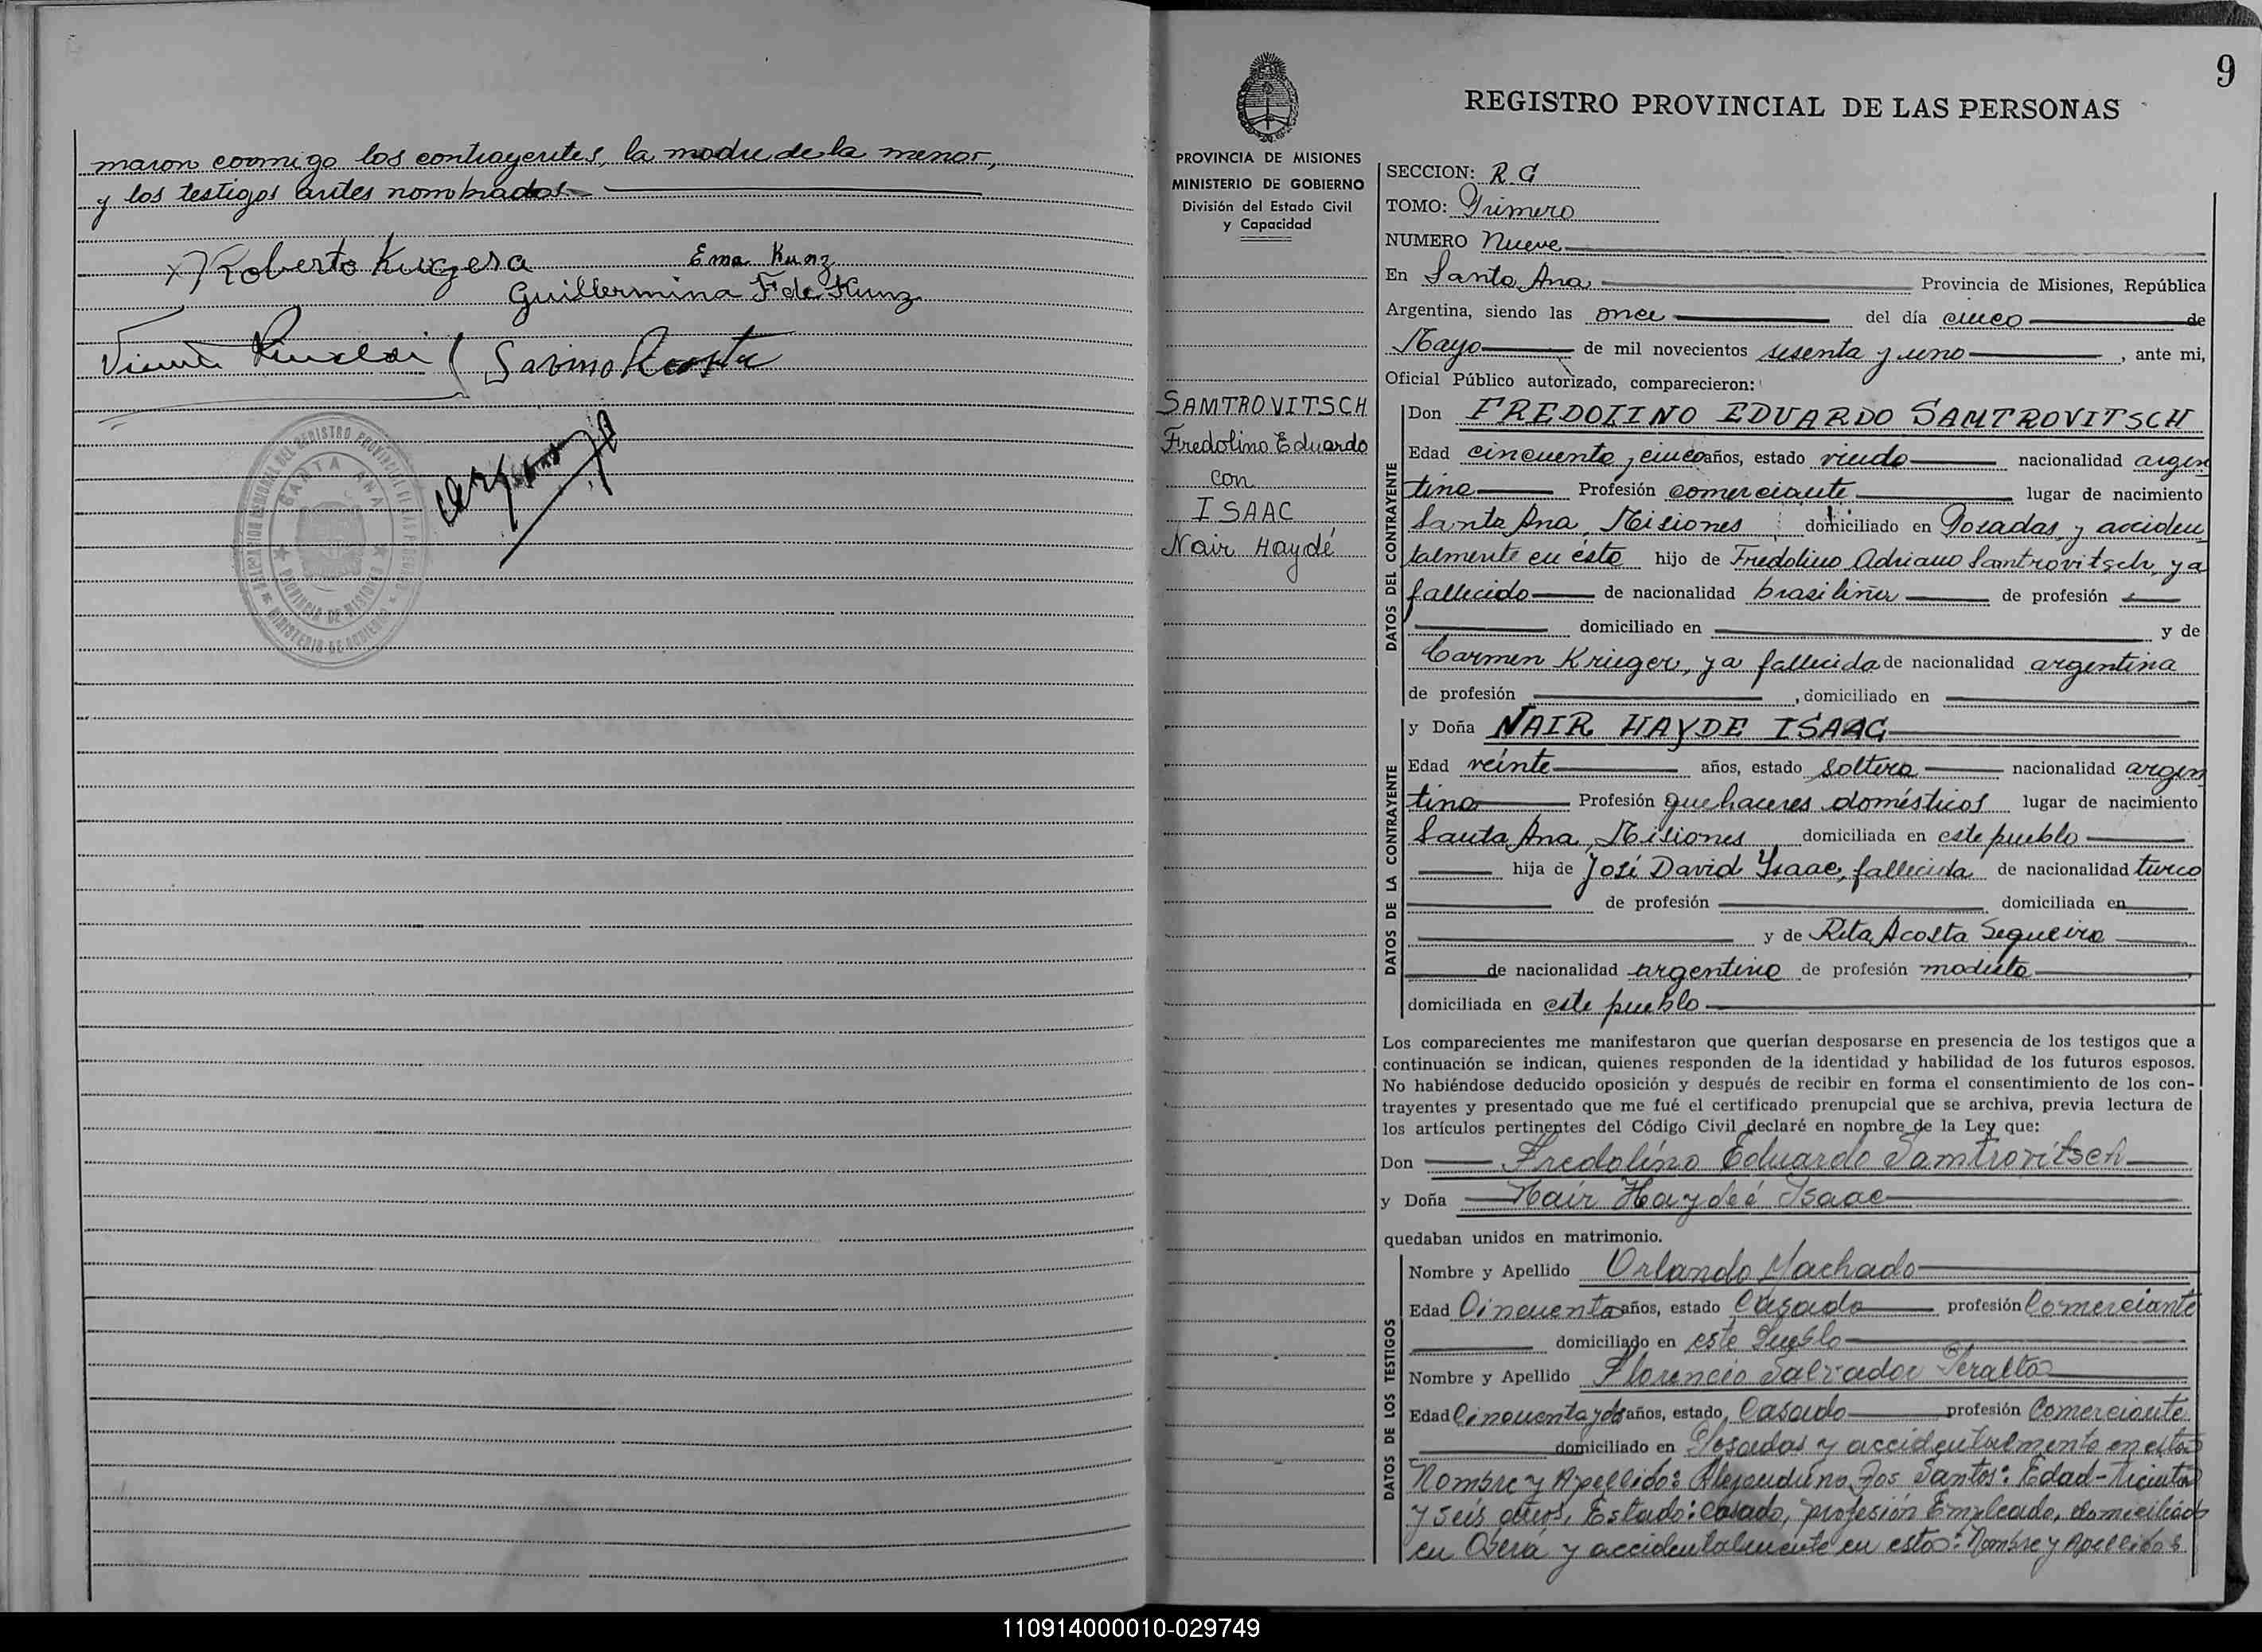 maron conmigo los contrayentes, la madre de la menor,
y los testigos antes nombrados
Roberto Kuczera
Ema Kunz
Guillermina F. de Kunz
Savino Acosta
SANTA ANA
PROVINCIA DE MISIONES
MINISTERIO DE GOBIERNO
9
REGISTRO PROVINCIAL DE LAS PERSONAS
PROVINCIA DE MISIONES
MINISTERIO DE GOBIERNO
División del Estado Civil
y Capacidad
SAMTROVITSCH
Fredolino Eduardo
con
ISAAC
Nair Haydé
SECCION: R.G
TOMO: Primero
NUMERO Nueve
En Santa Ana Provincia de Misiones, República
Argentina, siendo las once del día cinco de
Mayo de mil novecientos sesenta y uno, ante mi,
Oficial Público autorizado, comparecieron:
DATOS DEL CONTRAYENTE
Don FREDOLINO EDUARDO SAMTROVITSCH
Edad cincuenta y cinco años, estado viudo nacionalidad argen
tina Profesión comerciante lugar de nacimiento
Santa Ana, Misiones domiciliado en Posadas y acciden
talmente en ésta hijo de Fredolino Adriano Samtrovitsch, ya
fallecido de nacionalidad brasileña de profesión
domiciliado en y de
Carmen Krieger, ya fallecida de nacionalidad argentina
de profesión , domiciliado en
DATOS DE LA CONTRAYENTE
y Doña NAIR HAYDE ISAAC
Edad veinte años, estado soltera nacionalidad argen
tina Profesión quehaceres domésticos lugar de nacimiento
Santa Ana, Misiones domiciliada en este pueblo
hija de José David Isaac, fallecida de nacionalidad turco
de profesión domiciliada en
y de Rita Acosta Sequeira
de nacionalidad argentina de profesión modista
domiciliada en este pueblo
Los comparecientes me manifestaron que querían desposarse en presencia de los testigos que a
continuación se indican, quienes responden de la identidad y habilidad de los futuros esposos.
No habiéndose deducido oposición y después de recibir en forma el consentimiento de los con-
trayentes y presentado que me fué el certificado prenupcial que se archiva, previa lectura de
los artículos pertinentes del Código Civil declaré en nombre de la Ley que:
Don Fredolino Eduardo Samtrovitsch
y Doña Nair Haydeé Isaac
quedaban unidos en matrimonio.
DATOS DE LOS TESTIGOS
Nombre y Apellido Orlando Machado
Edad Cincuenta años, estado Casado profesión Comerciante
domiciliado en este Pueblo
Nombre y Apellido Florencio Salvador Peralta
Edad Cincuenta y dos años, estado Casado profesión Comerciante
domiciliado en Posadas y accidentalmente en esta
Nombre y Apellido: Alejandrino Dos Santos: Edad-treinta
y seis años, Estado: casado, profesión Empleado, domiciliado
en Oberá y accidentalmente en esta: Nombre y Apellido:
110914000010-029749